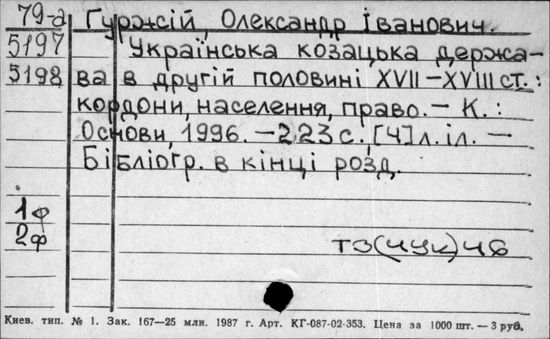 79-а Гуржій, Олександр Іванович.
5197 Українська козацька держа-
5198 ва в другій половині XVII-XVIII ст.:
кордони, населення, право. - К.:
Основи, 1996. - 223 с., [4] л. іл. -
Бібліогр. в кінці розд.
1ф
2ф
Т3(4Ук)46
Киев. тип. № 1. Зак. 167—25 млн. 1987 г. Арт. КГ-087-02-353. Цена за 1000 шт. — 3 руб.